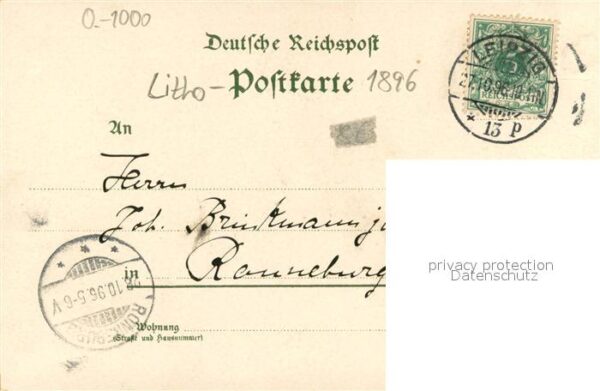 0.-1000
Deutsche Reichspost
Litho - Postkarte 1896
LEIPZIG
13 P
An
Herrn
Joh. Brinkmann
in Ronneburg
28.10.96.5-6V
Wohnung
(Straße und Hausnummer)
privacy protection
Datenschutz